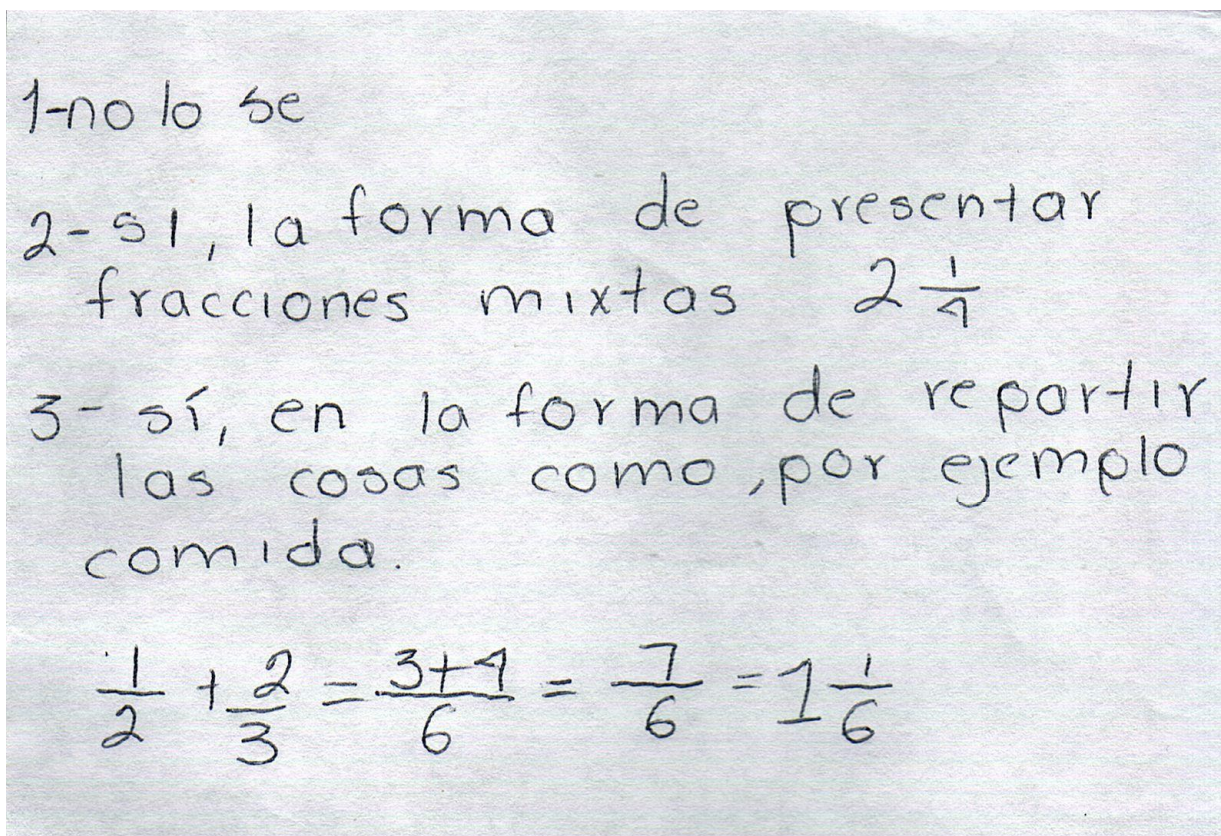 1-no lo se
2-si, la forma de presentar
fracciones mixtas 2 1/4
3- sí, en la forma de repartir
las cosas como, por ejemplo
comida.
1/2 + 2/3 = 3+4/6 = 7/6 = 1 1/6